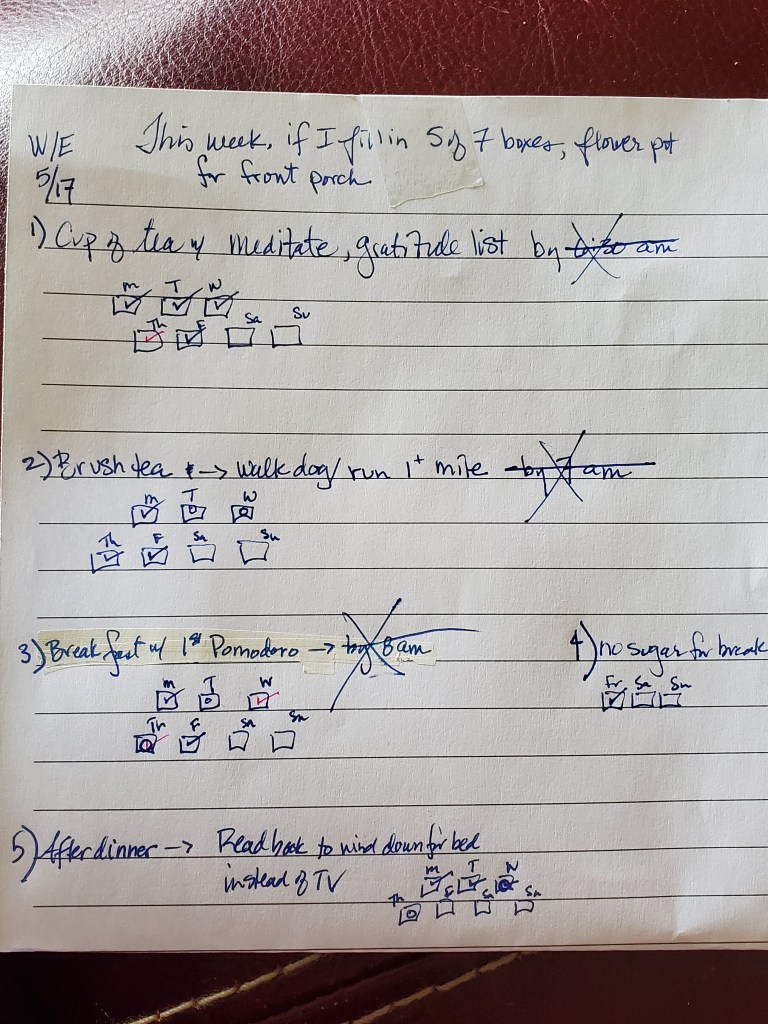 W/E This week, if I fill in 5 of 7 boxes, flower pot
5/17 for front porch
1) Cup of tea w/ meditate, gratitude list by 6:30 am
M T W
Th F Sa Su
2) Brush tea → walk dog/ run 1+ mile by 7 am
M T W
Th F Sa Su
3) Breakfast w/ 1st Pomodoro → by 8 am
4) no sugar for break
M T W
Fr Sa Su
Th F Sa Su
5) After dinner → Read book to wind down for bed
instead of TV
M T W
Th F Sa Su